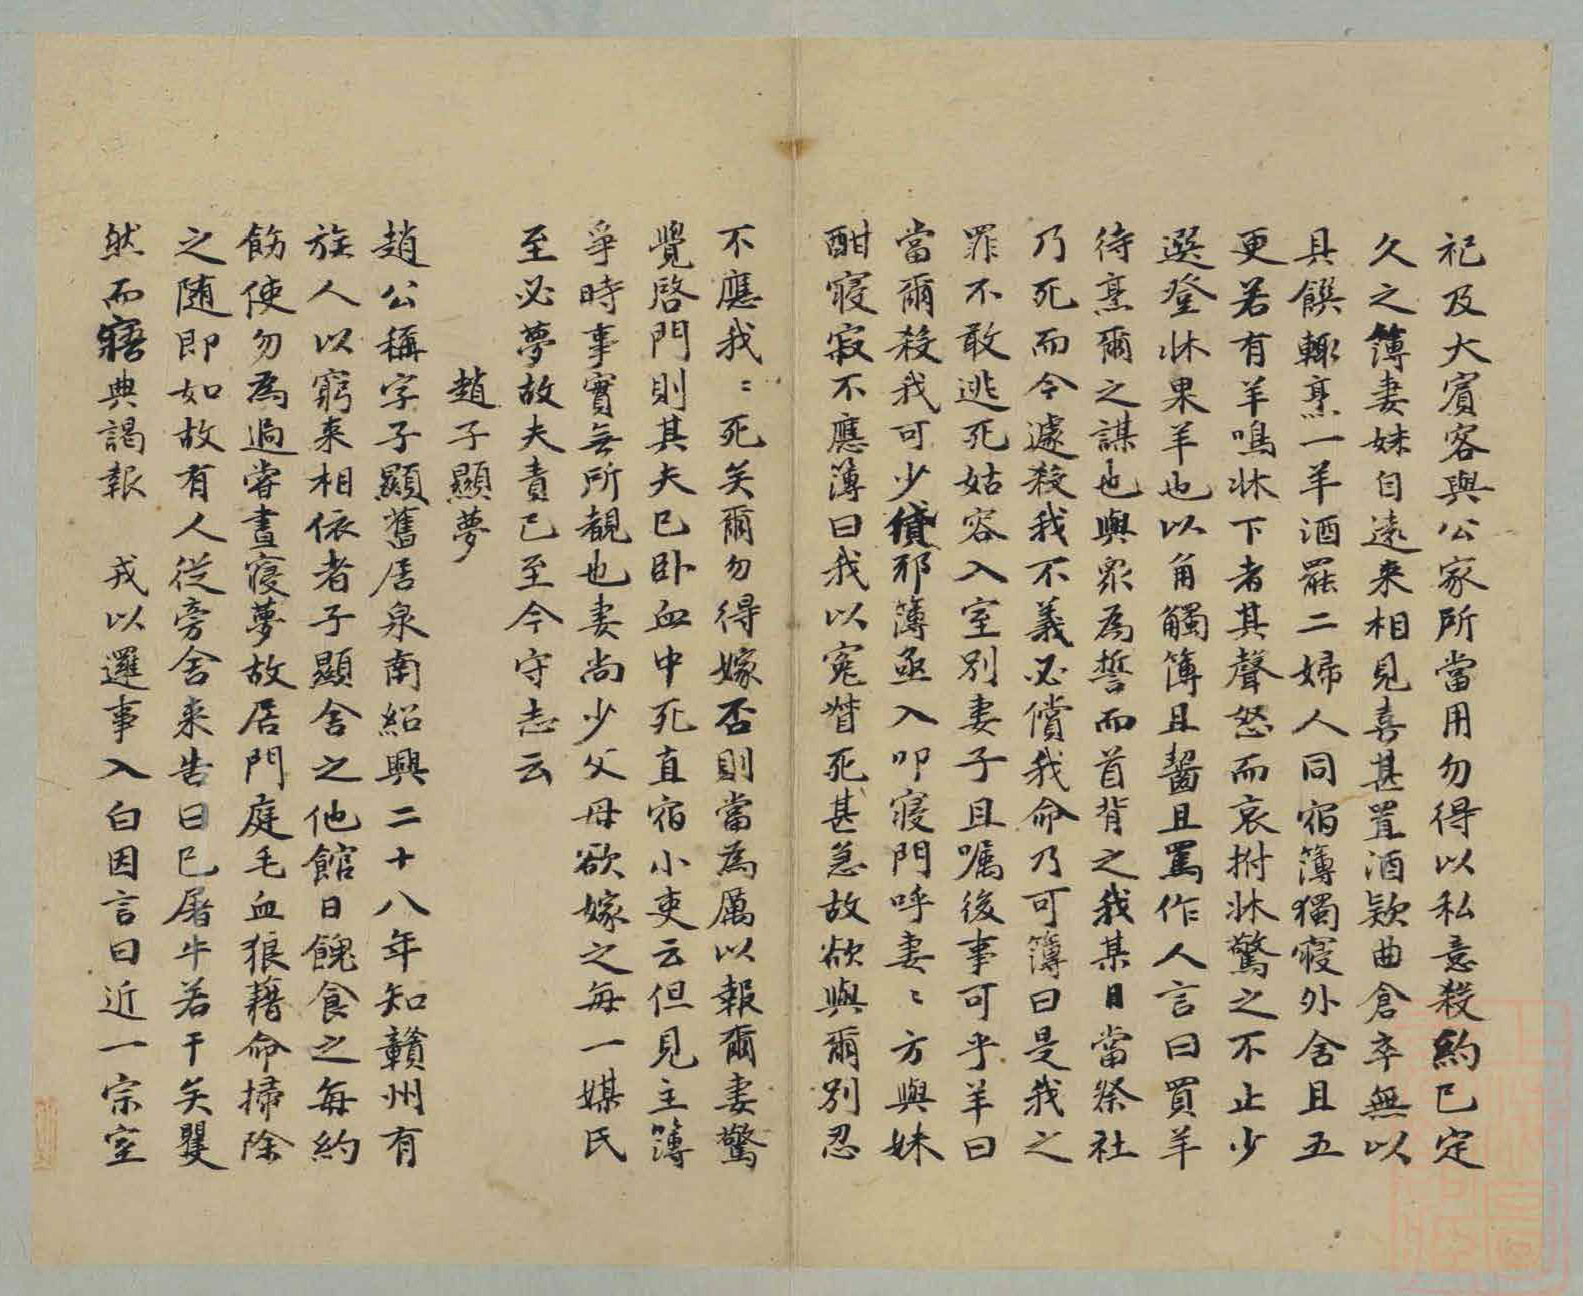 祀及大賓客與公家所當用勿得以私意殺約已定
久之簿妻妹自遠来相見喜甚置酒欵曲倉卒無以
具饌輙烹一羊酒罷二婦人同宿簿獨寢外舍且五
更若有羊鳴牀下者其聲怒而哀拊牀驚之不止少
選登牀果羊也以角觸簿且齧且罵作人言曰買羊
待烹爾之謀也與衆為誓而首背之我某日當祭社
乃死而今遽殺我不義必償我命乃可簿曰是我之
罪不敢逃死姑容入室别妻子且囑後事可乎羊曰
當爾殺我可少貸邪簿亟入叩寢門呼妻〻方與妹
酣寢寂不應簿曰我以寃對死甚急故欲與爾别忍
不應我〻死矣爾勿得嫁否則當為厲以報爾妻驚
覺啓門則其夫已卧血中死直宿小吏云但見主簿
爭時事實無所覩也妻尚少父母欲嫁之每一媒氏
至必夢故夫責已至今守志云
趙子顯夢
趙公稱字子顯舊居泉南紹興二十八年知贛州有
族人以窮来相依者子顯舍之他館日餽食之每約
飭使勿為過甞晝寢夢故居門庭毛血狼藉命掃除
之随即如故有人從旁舍来告曰已屠牛若干矣矍
然而寤典謁報 戎以邏事入白因言曰近一宗室